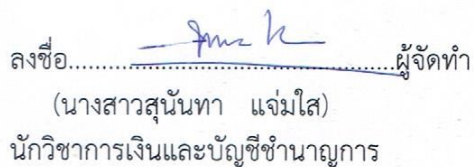 ลงชื่อ......................................................ผู้จัดทำ
(นางสาวสุนันทา แจ่มใส)
นักวิชาการเงินและบัญชีชำนาญการ